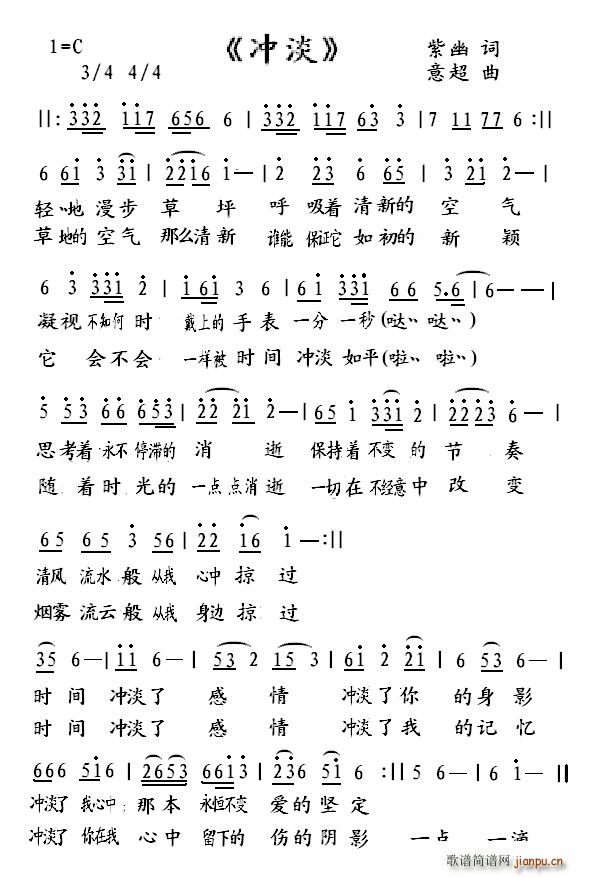 1=C 《冲淡》 紫幽 词
3/4 4/4 意超 曲
||: 332 117 656 6 | 332 117 63 3 | 7 11 77 6 :||
6 61 3 31 | 2216 1— | 2 23 6 65 | 3 21 2— |
轻地 漫步 草 坪 呼 吸着 清新的 空 气
草地的 空气 那么清 新 谁能 保证它 如初的 新 颖
6 3 331 2 | 161 3 6 | 61 331 66 5.6 | 6— — |
凝视 不知何 时 戴上的 手 表 一分 一秒(哒 哒)
它 会不会 一样被 时间 冲淡 如平(啦 啦)
5 53 66 653 | 22 21 2— | 65 1 331 2 | 2223 6— |
思考着 永不 停滞的 消 逝 保持着 不变 的 节 奏
随 着时 光的 一点点消 逝 一切在 不经意中 改 变
65 65 3 56 | 22 16 1—:||
清风 流水 般 从我 心中 掠 过
烟雾 流云 般 从我 身边 掠 过
35 6— | 11 6— | 53 2 15 3 | 61 2 21 | 6 53 6— |
时 间 冲淡了 感 情 冲淡了你 的身 影
时 间 冲淡了 感 情 冲淡了我 的记 忆
666 516 | 2653 6613 | 236 51 6 :|| 5 6— | 6 1— ||
冲淡了 我心中 那本 永恒不变 爱的 坚定
冲淡了 你在我 心中 留下的 伤的 阴影 一点 一滴
歌谱简谱网
jianpu.cn